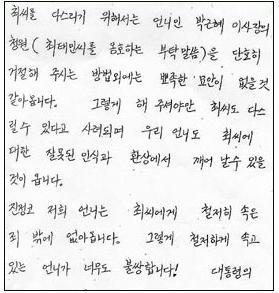 최씨를 다스리기 위해서는 언니인 박근혜 이사장의
청원 ( 최태민씨를 옹호하는 부탁말씀)을 단호히
거절해 주시는 방법외에는 뾰족한 묘안이 없을것
같아옵니다. 그렇게 해 주셔야만 최씨도 다스
릴 수 있다고 사려되며 우리 언니도 최씨에
대한 잘못된 인식과 환상에서 깨어 날 수 있을
것이 옵니다.
진정코 저희 언니는 최씨에게 철저히 속은
죄 밖에 없아옵니다. 그렇게 철저하게 속고
있는 언니가 너무도 불쌍합니다! 대통령의